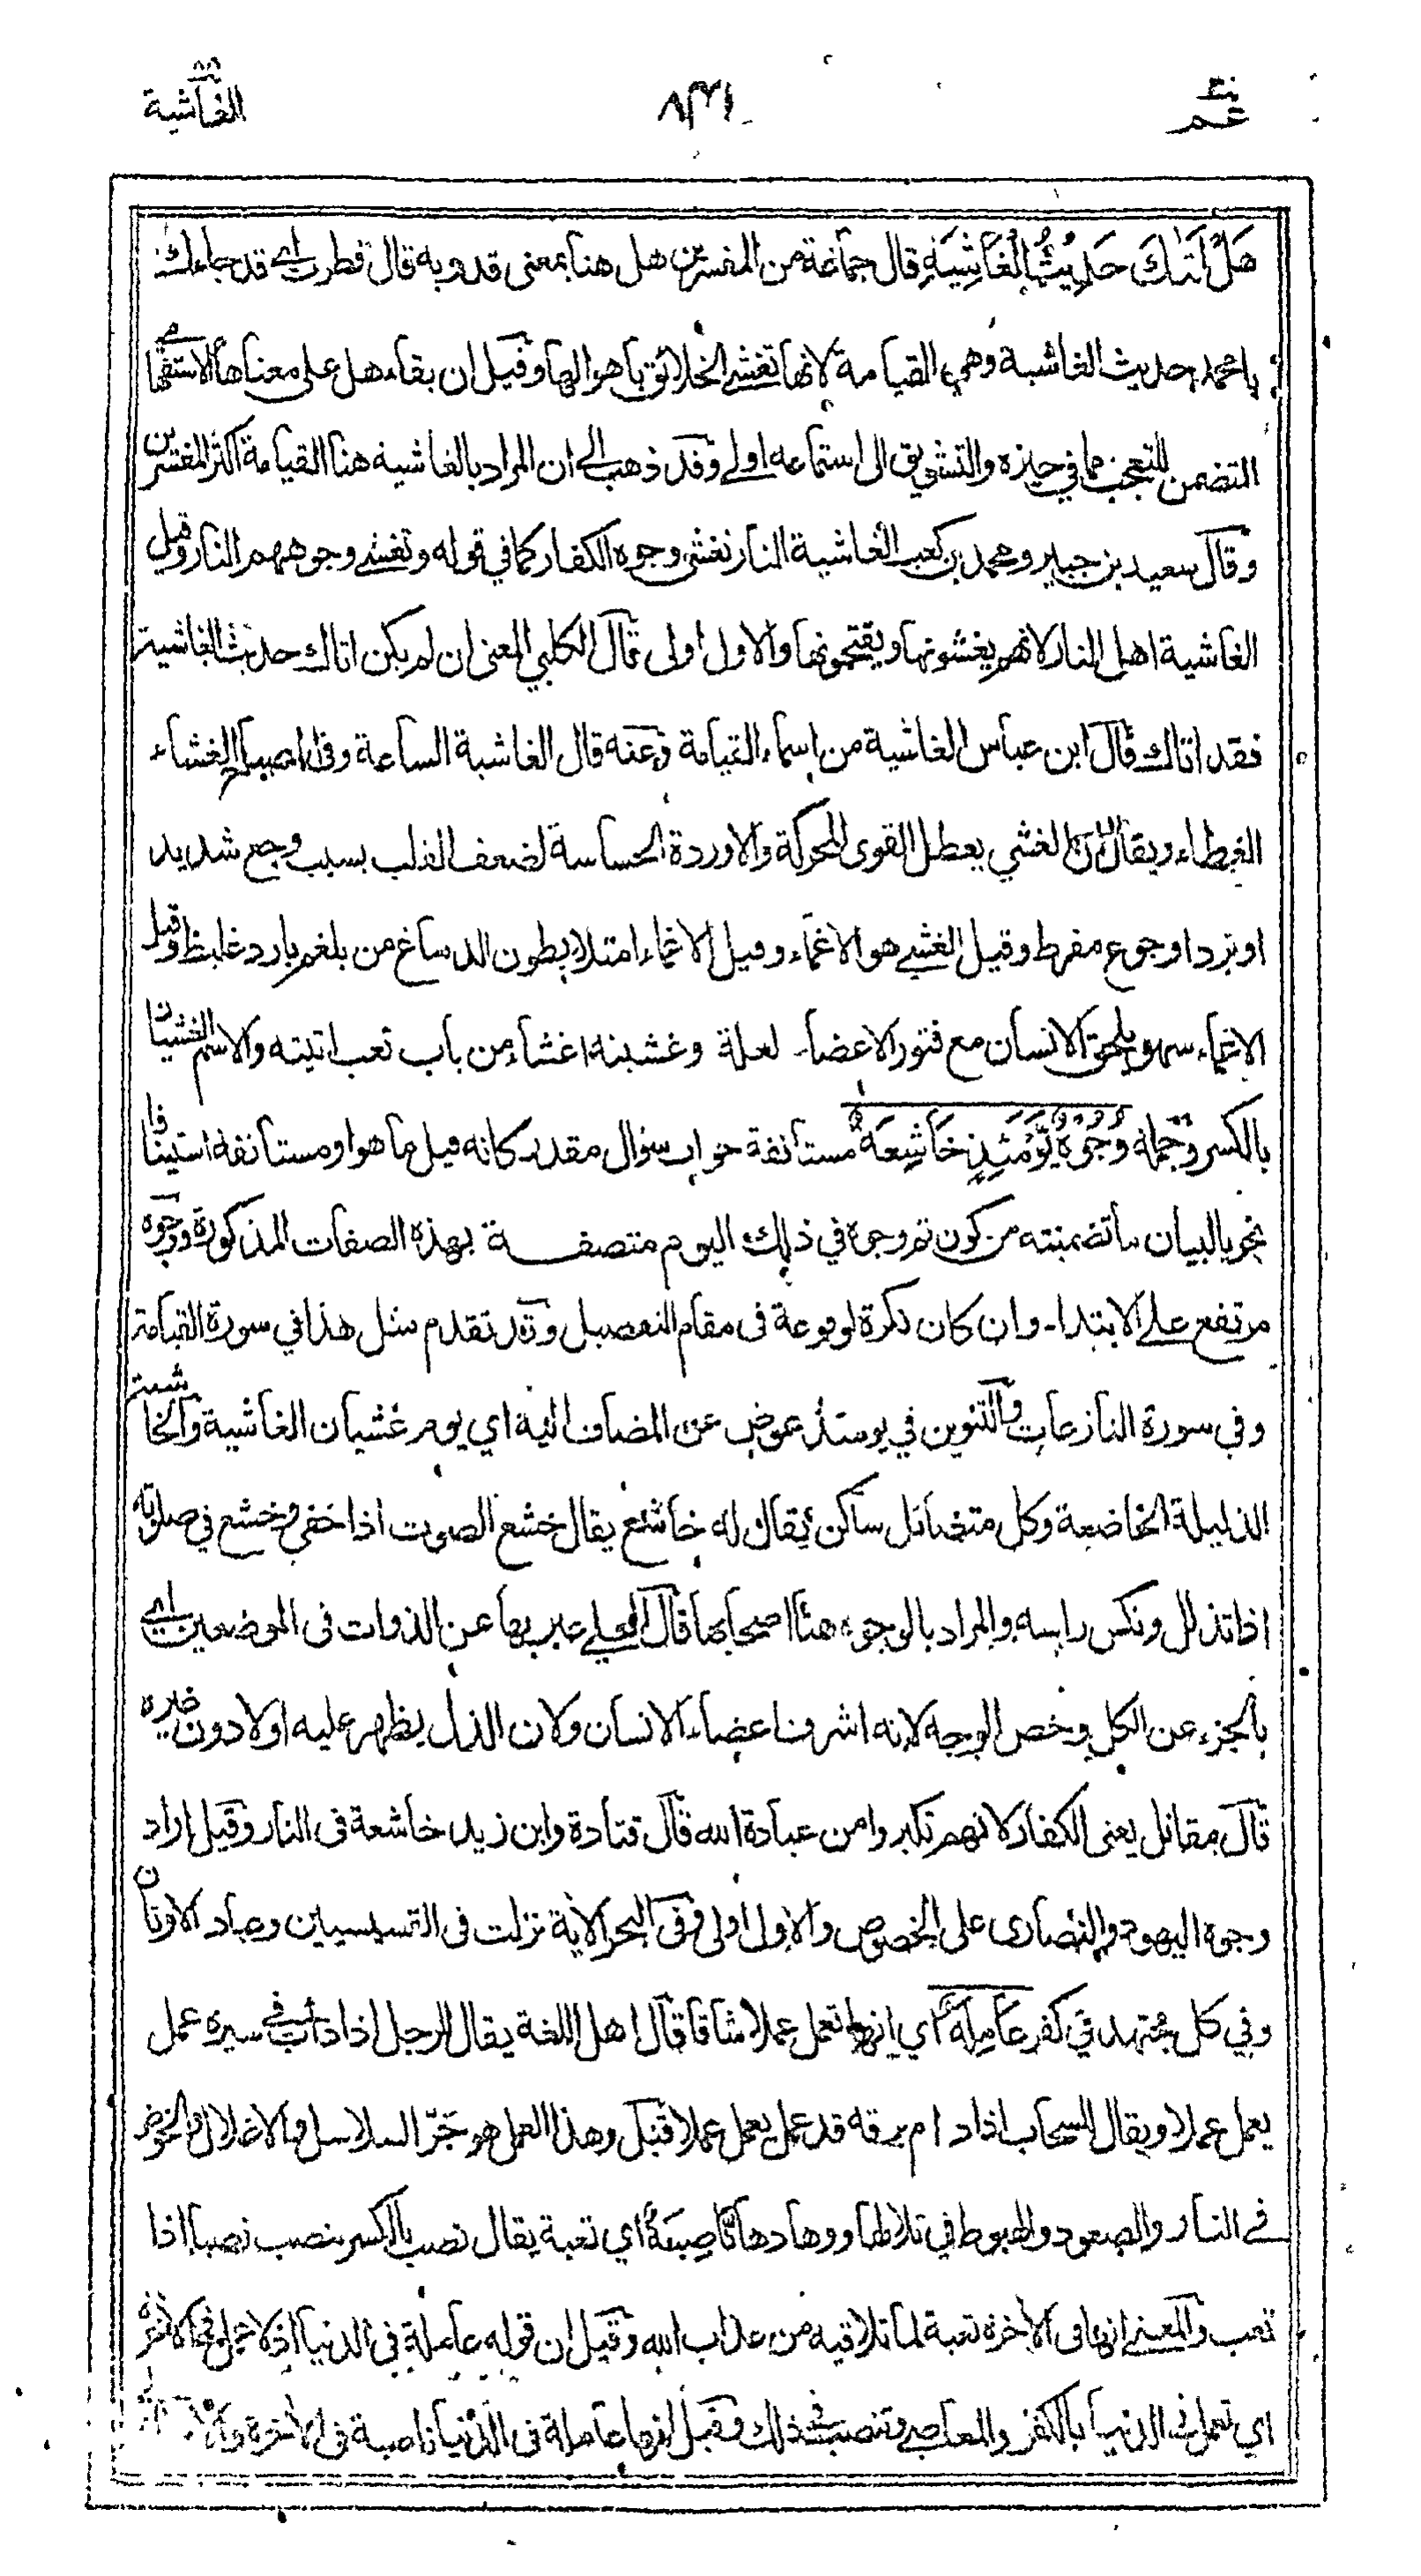 عم ٣٠
٨٣١
الغاشية ٨٨
هَلْ أَتٰىكَ حَدِيْثُ الْغَاشِيَةِ قال جماعة من المفسرين هل هنا بمعنى قد وبه قال قطرب اي قد جاءك
يا محمد حديث الغاشية وهي القيامة لانها تغشى الخلائق باهوالها وقيل ان بقاء هل على معناها الاستفهام
المتضمن للتعجب مما في حيزه والتشويق الى استماعه اولى وقد ذهب الى ان المراد بالغاشية هنا القيامة اكثر المفسرين
وقال سعيد بن جبير ومحمد بن كعب الغاشية النار تغشى وجوه الكفار كما في قوله وتغشى وجوههم النار وقيل
الغاشية اهل النار لانهم يغشونها ويقتحمونها والاول اولى قال الكلبي المعنى ان لم يكن اتاك حديث الغاشية
فقد اتاك قال ابن عباس الغاشية من اسماء القيامة وعنه قال الغاشية الساعة وفي المصباح الغشاء
الغطاء ويقال ان الغشي يعطل القوى المحركة والاوردة الحساسة لضعف القلب بسبب وجع شديد
او برد او جوع مفرط وقيل الغشي هو الاغماء وقيل الاغماء امتلاء بطون الدماغ من بلغم بارد غليظ وقيل
الاغماء سهو يلحق الانسان مع فتور الاعضاء لعلة وغشيته اغشاه من باب تعب اتيته والاسم الغشيان
بالكسر وجملة وُجُوْهٌ يَّوْمَئِذٍ خَاشِعَةٌ مستأنفة جواب سؤال مقدر كانه قيل ما هو او مستأنفة استينافا
نحويا لبيان ما تضمنته من كون ثم وجوه في ذلك اليوم متصفة بهذه الصفات المذكورة ووجوه
مرتفع على الابتداء وان كان نكرة لوقوعه فى مقام التفصيل وقد تقدم مثل هذا في سورة القيامة
وفي سورة النازعات والتنوين في يومئذ عوض عن المضاف اليه اي يوم غشيان الغاشية والخاشعة
الذليلة الخاضعة وكل متضائل ساكن يقال له خاشع يقال خشع الصوت اذا خفي وخشع في صلوته
اذا تذلل ونكس راسه والمراد بالوجوه هنا اصحابها قال المحلي عبر بها عن الذوات فى الموضعين اي
بالجزء عن الكل وخص الوجه لانه اشرف اعضاء الانسان ولان الذل يظهر عليه اولا دون غيره
قال مقاتل يعنى الكفار لانهم تكبروا من عبادة الله قال قتادة وابن زيد خاشعة فى النار وقيل اراد
وجوه اليهود والنصارى على الخصوص والاول اولى وفى البحر الاية نزلت فى القسيسين وعباد الاوثان
وفي كل مجتهد في كفر عَامِلَةٌ اي انها تعمل عملا شاقا قال اهل اللغة يقال للرجل اذا دأب في سيره عمل
يعمل عملا ويقال للسحاب اذا دام برقه قد عمل يعمل عملا قيل وهذا العمل هو جَرّ السلاسل والاغلال والخوض
في النار والصعود والهبوط في تلالها ووهادها نَّاصِبَةٌ اي تعبة يقال نصب بالكسر ينصب نصبا اذا
تعب والمعنى انها فى الاخرة تعبة لما تلاقيه من عذاب الله وقيل ان قوله عاملة في الدنيا اذ لا عمل في الاخرة
اي تعمل فى الدنيا بالكفر والمعاصي وتنصب في ذلك وقيل انها عاملة فى الدنيا ناصبة فى الاخرة